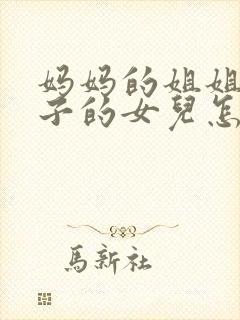 妈妈的姐姐
子的女兒怎
馬新社